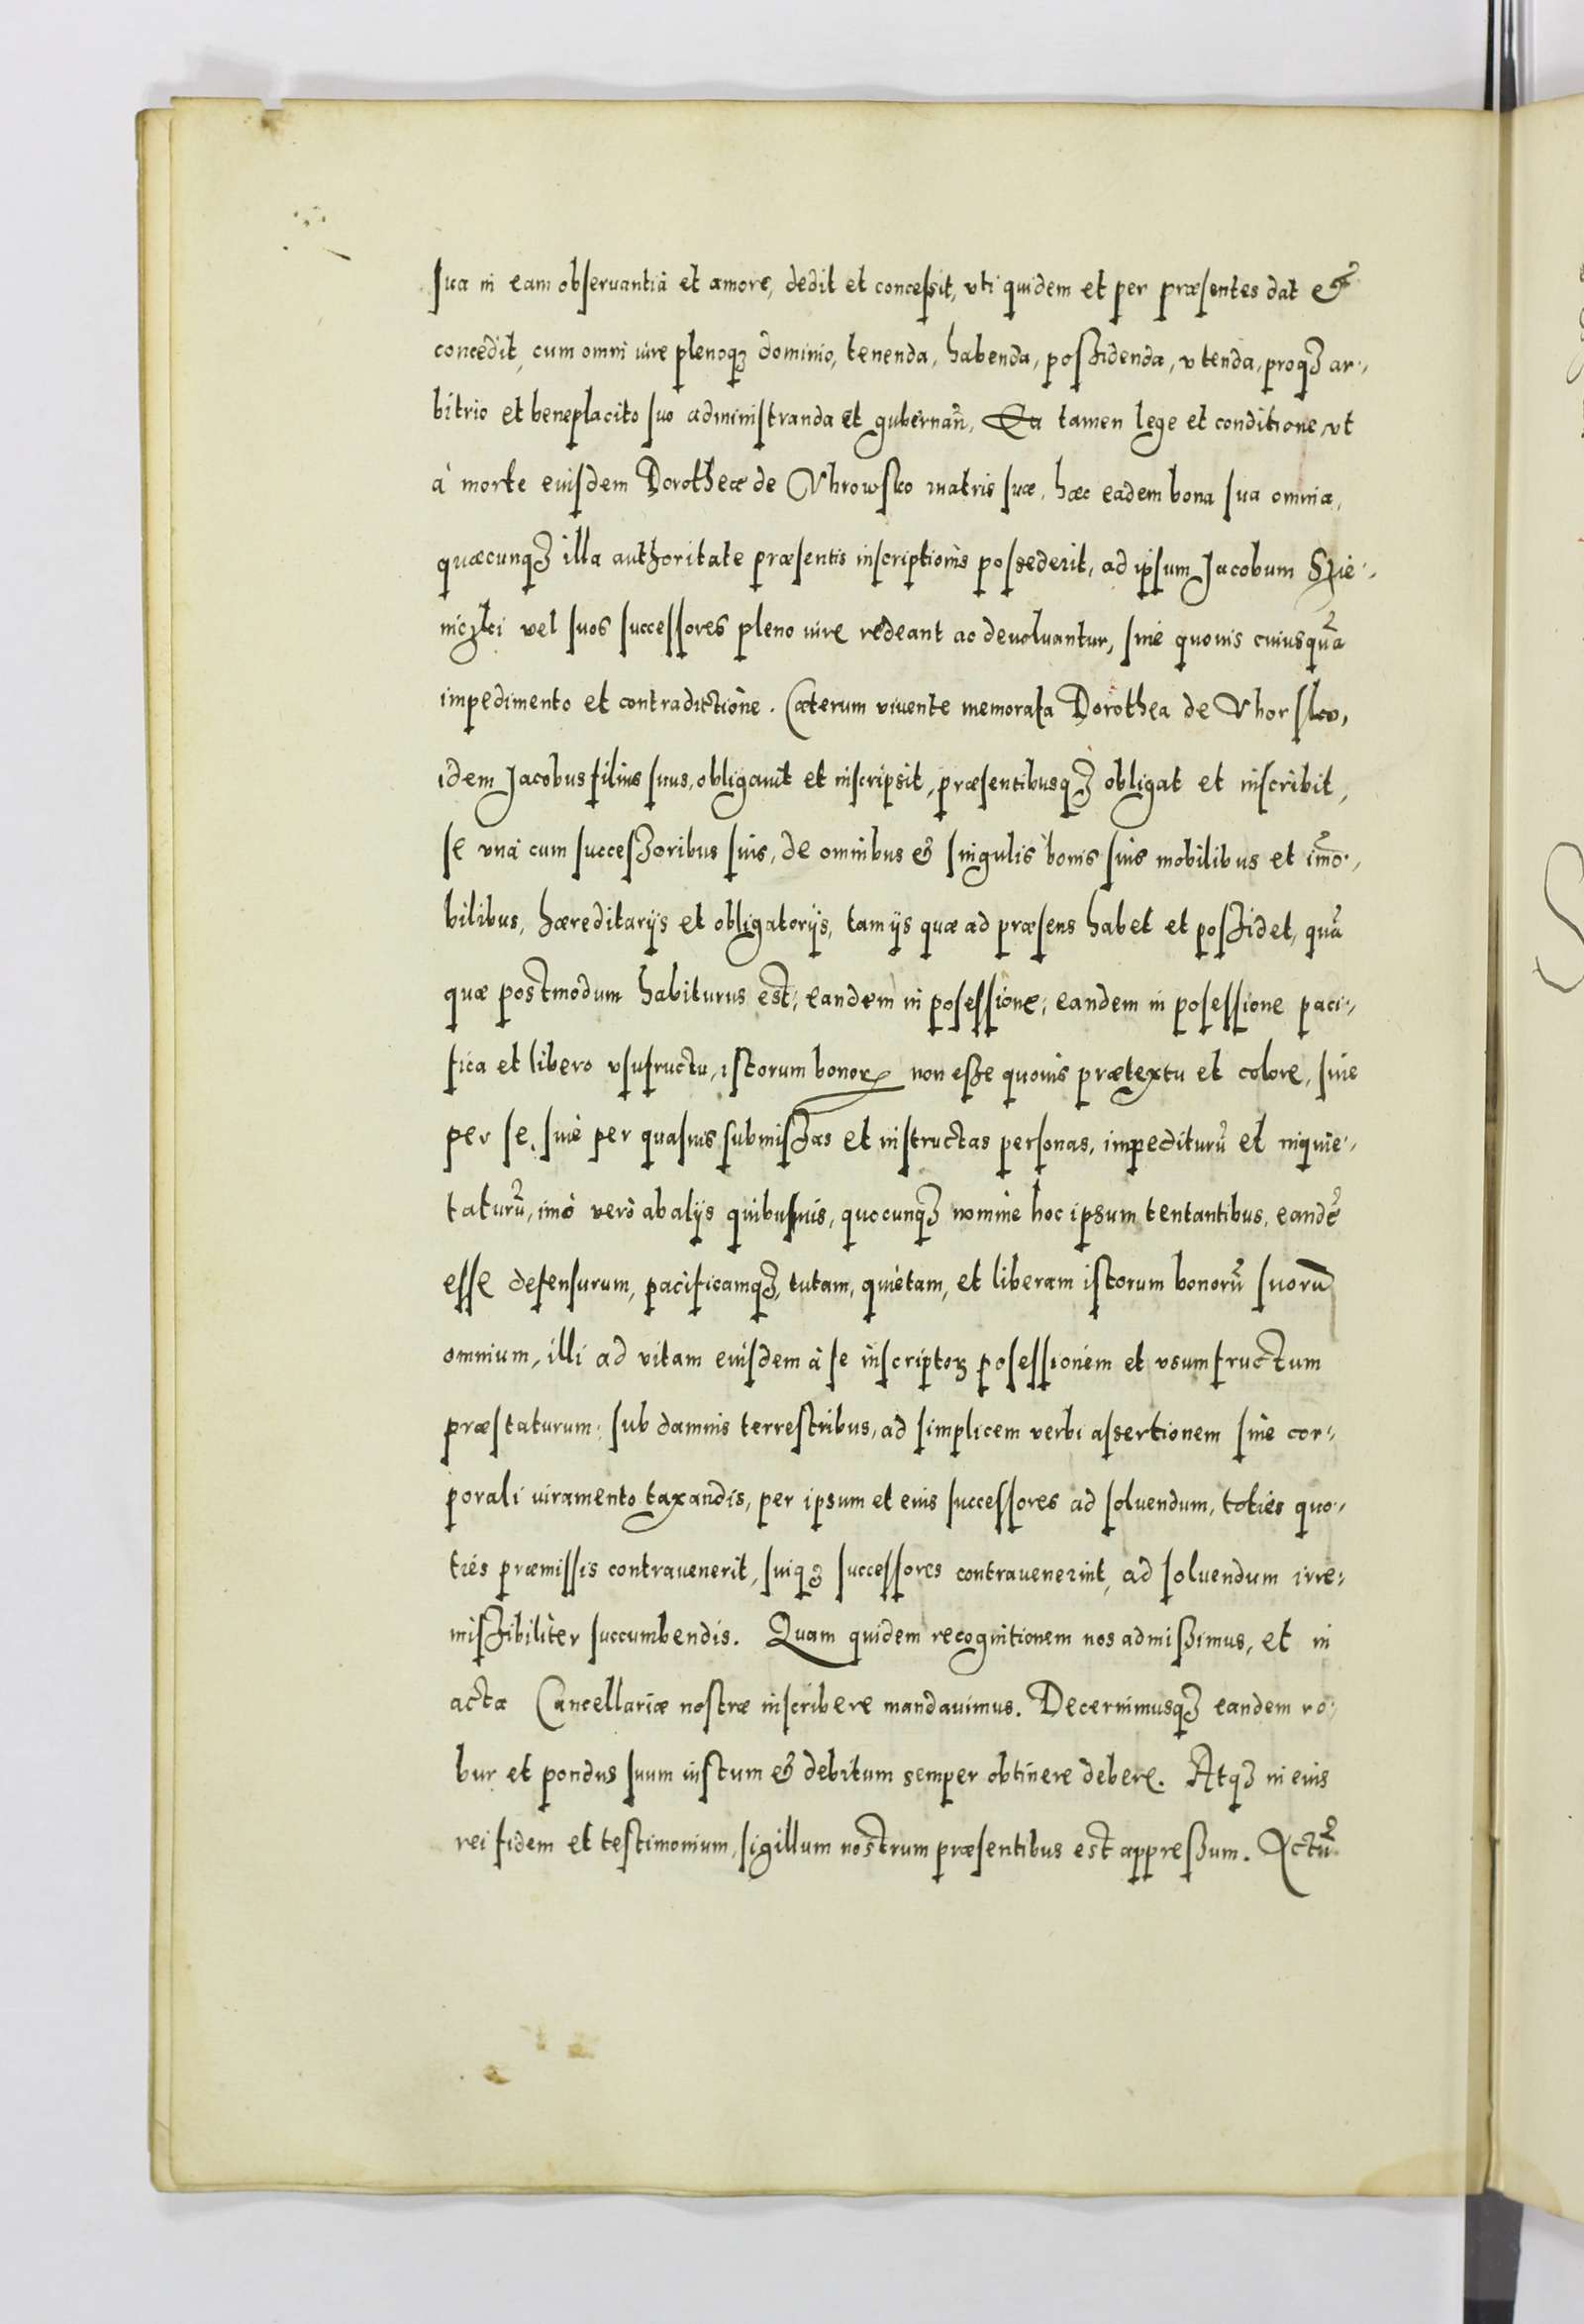 sua in eam obseruantia et amore, dedit et concessit, vti quidem et per præsentes dat &
concedit, cum omni iure plenoqꝫ dominio, tenenda, habenda, possidenda, vtenda, proqꝫ ar-
bitrio et beneplacito suo administranda et gubernan̄, Ea tamen lege et conditione, vt
à morte eiusdem Dorotheæ de Vhrowsko matris suæ, hæc eadem bona sua omnia,
quæcunqꝫ illa authoritate præsentis inscriptionis possederit, ad ipsum Jacobum
vel suos successores pleno iure redeant ac deuoluantur, sine quouis cuiusquā
impedimento et contradictione. Cæterum viuente memorata Dorothea de Vhorsko,
idem Jacobus filius suus, obligauit et inscripsit, præsentibusqꝫ obligat et inscribit,
se vnà cum successoribus suis, de omnibus & singulis bonis suis mobilibus et im̄o-
bilibus, hæreditarijs et obligatorijs, tam ijs quæ ad præsens habet et possidet, quā
quæ postmodum habiturus est; eandem in posessione; eandem in posessione paci-
fica et libero vsufructu, istorum bonoꝝ non esse quouis prætextu et colore, siue
per se, siue per quasuis submissas et instructas personas, impediturū et inquie-
taturū, imò verò ab alijs quibusuis, quocunqꝫ nomine hoc ipsum tentantibus, eandē
esse defensurum, pacificamqꝫ, tutam, quietam, et liberam istorum bonorū suorū
omnium, illi ad vitam eiusdem à se inscriptoꝝ posessionem et vsumfructum
præstaturum; sub damnis terrestribus, ad simplicem verbi assertionem sine cor-
porali iuramento taxandis, per ipsum et eius successores ad soluendum, toties quo-
ties præmissis contrauenerit, suiqꝫ successores contrauenerint, ad soluendum irre-
missibiliter succumbendis. Quam quidem recognitionem nos admissimus, et in
acta Cancellariæ nostræ inscribere mandauimus. Decernimusqꝫ eandem ro-
bur et pondus suum iustum & debitum semper obtinere debere. Atqꝫ in eius
rei fidem et testimonium, sigillum nostrum præsentibus est appressum. Actū